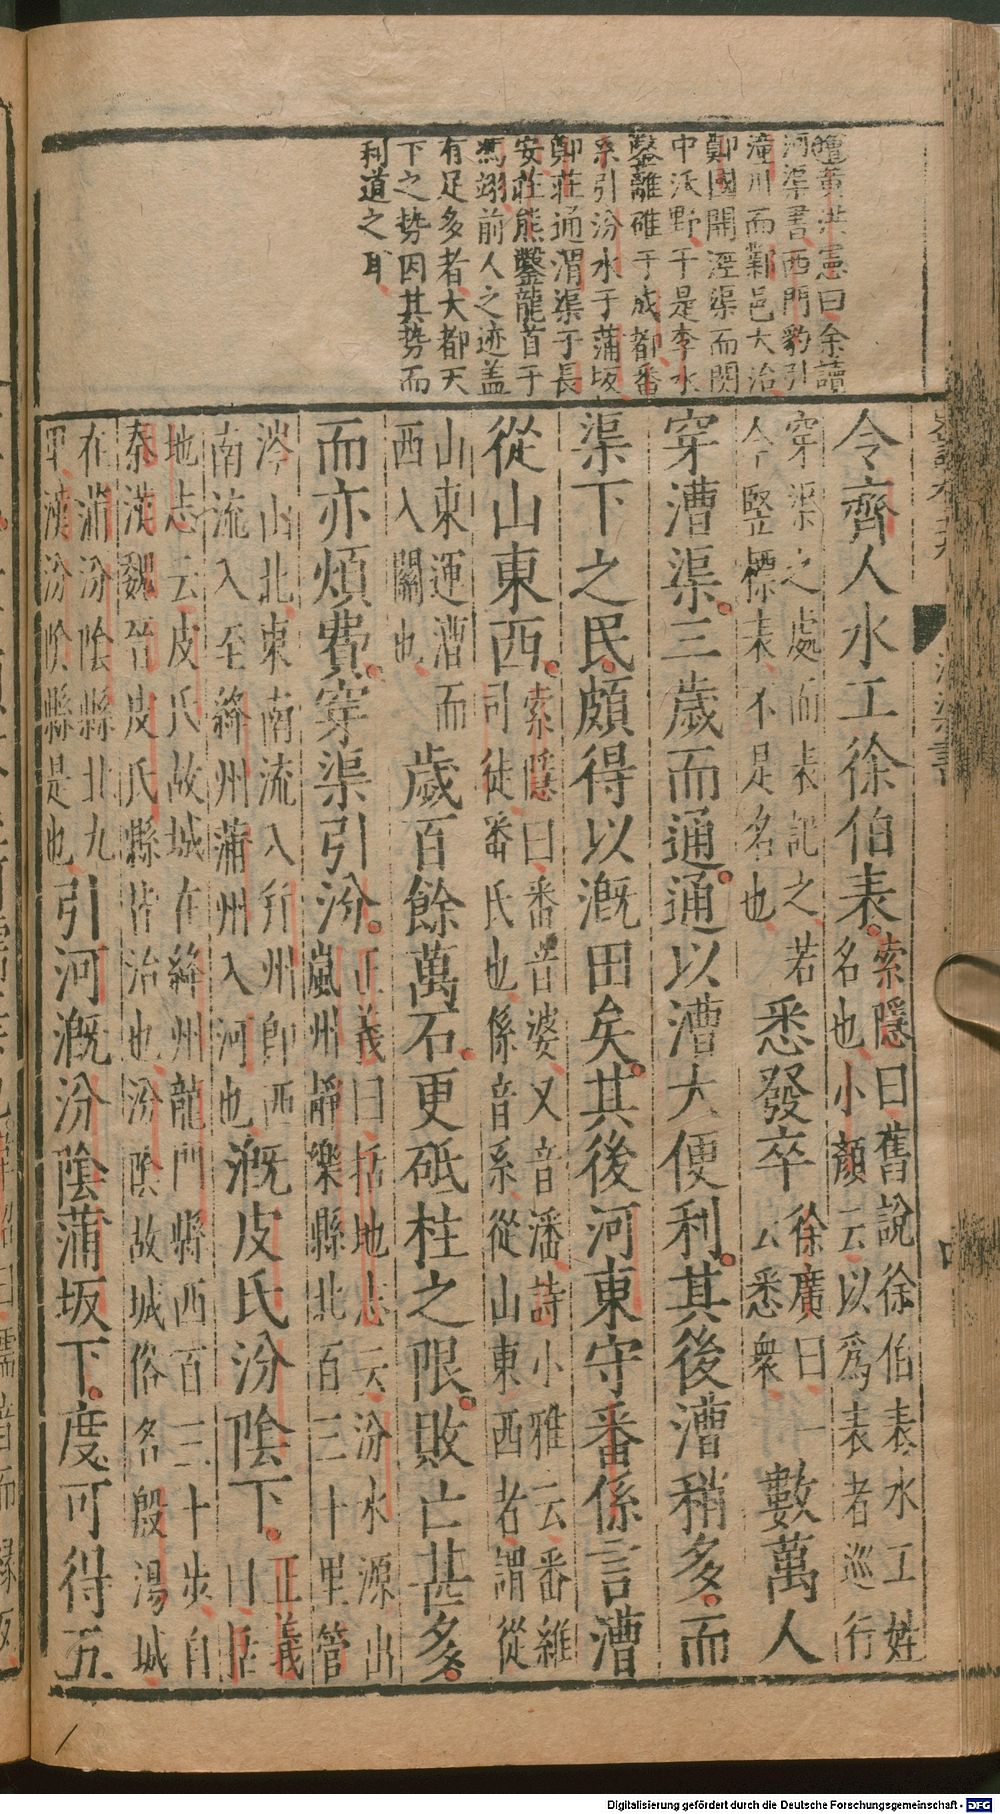 黃洪憲曰余讀
河渠書西門豹引
漳川而鄴邑大治
鄭國開涇渠而關
中沃野于是李冰
鑿離碓于成都番
系引汾水于蒲坂
鄭莊通渭渠于長
安莊熊鑿龍首于
馮翊前人之迹盖
有足多者大都天
下之勢因其勢而
利道之耳
令齊人水工徐伯表
索隱曰舊說徐伯表水工姓
名也小顏云以為表者巡行
穿渠之處而表記之若
今竪標表不是名也
悉發卒
徐廣曰一
云悉衆
數萬人
穿漕渠三歲而通通以漕大便利其後漕稍多而
渠下之民頗得以溉田矣其後河東守番係言漕
從山東西
索隱曰番音婆又音潘詩小雅云番維
司徒番氏也係音系從山東西者謂從
山東運漕而
西入關也
歲百餘萬石更砥柱之限敗亡甚多
而亦煩費穿渠引汾
正義曰括地志云汾水源出
嵐州靜樂縣北百三十里管
涔山北東南流入并州即西
南流入至絳州蒲州入河也
溉皮氏汾陰下
正義
曰括
地志云皮氏故城在絳州龍門縣西百三十步自
秦漢魏晉皮氏縣皆治也汾陰故城俗名殷湯城
在蒲汾陰縣北九
里漢汾陰縣是也
引河溉汾陰蒲坂下度可得五
Digitalisierung gefördert durch die Deutsche Forschungsgemeinschaft - DFG